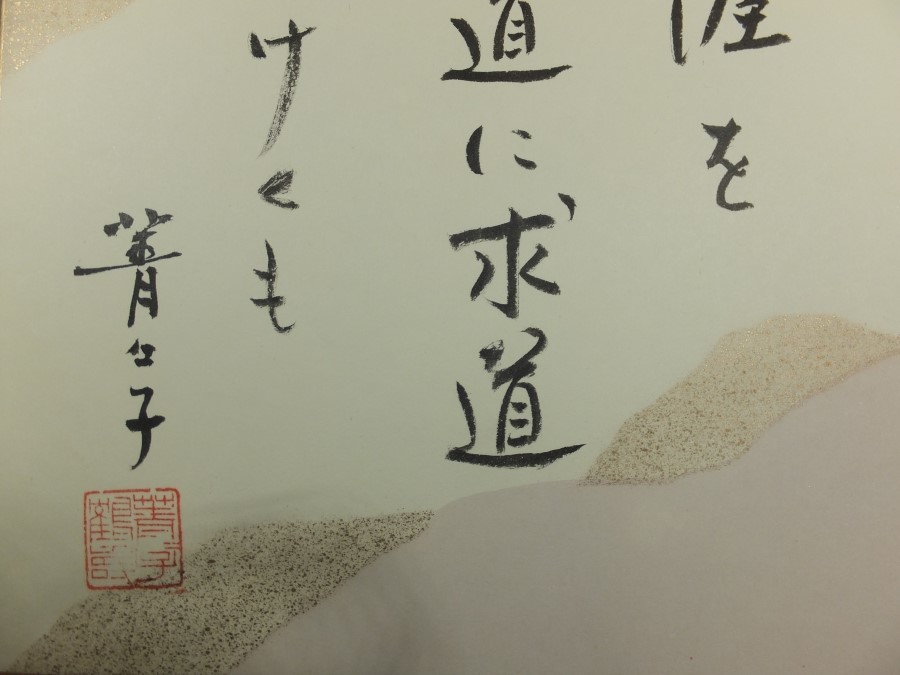 涯を
道に求道
けくも
菁々子